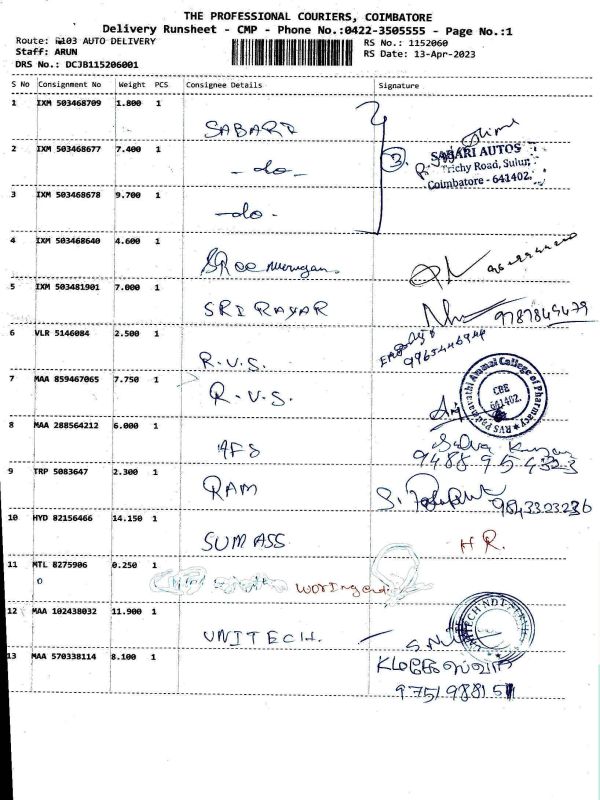 THE PROFESSIONAL COURIERS, COIMBATORE
Delivery Runsheet - CMP - Phone No.:0422-3505555 - Page No.:1
Route: R103 AUTO DELIVERY
RS No.: 1152060
Staff: ARUN
RS Date: 13-Apr-2023
DRS No.: DCJB115206001
S No Consignment No Weight PCS Consignee Details Signature
1 IXM 503468709 1.800 1
SABARI
2 IXM 503468677 7.400 1
-do-
3
SABARI AUTOS
Trichy Road, Sulur,
Coimbatore - 641402.
3 IXM 503468678 9.700 1
-do-
4 IXM 503468640 4.600 1
SRee murugan
5 IXM 503481901 7.000 1
SRI RAYAR
9787845479
6 VLR 5146084 2.500 1
R.V.S.
9965446946
7 MAA 859467065 7.750 1
R.V.S.
RVS Padmavathi Ammal College of Pharmacy
CBE
641402.
8 MAA 288564212 6.000 1
AFS
Selva Kumar
9488954323
9 TRP 5083647 2.300 1
RAM
9843323236
10 HYD 82156466 14.150 1
SUMASS
HR.
11 MTL 8275906 0.250 1
0
12 MAA 102438032 11.900 1
UNITECH.
13 MAA 570338114 8.100 1
9751988151